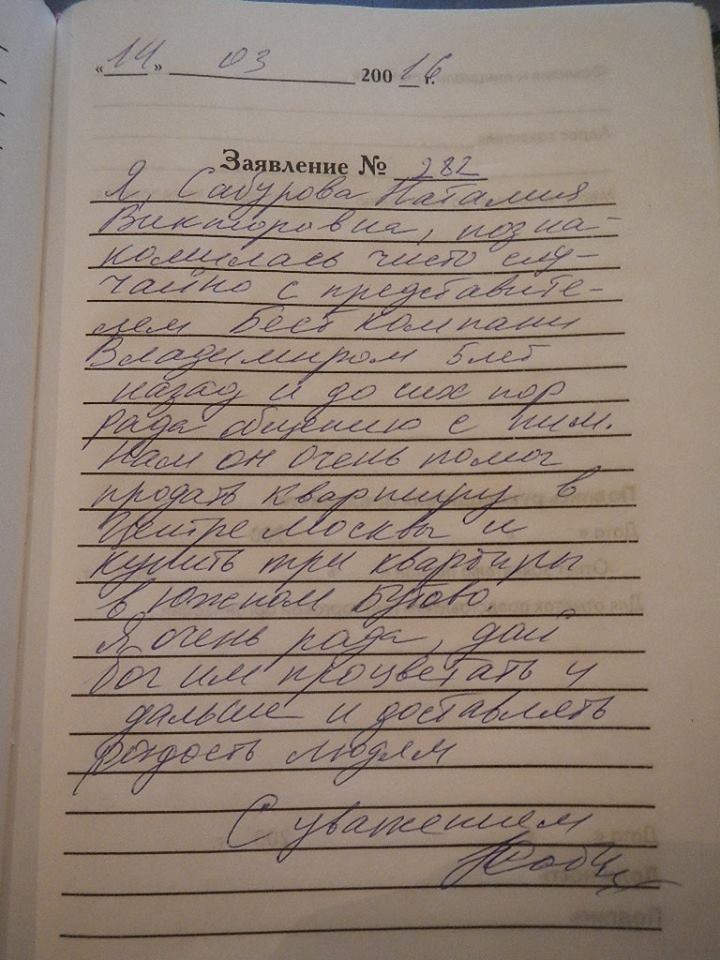 « 14 » 03 200 16 г.
Заявление № 282
Я, Сабурова Наталия
Викторовна, позна-
комилась чисто слу-
чайно с представите-
лем Бест компани
Владимиром 5 лет
назад и до сих пор
рада общению с ним.
Нам он очень помог
продать квартиру в
Центре Москвы и
купить три квартиры
в Южном Бутово
Я очень рада, дай
бог им процветать и
дальше и доставлять
радость людям
С уважением